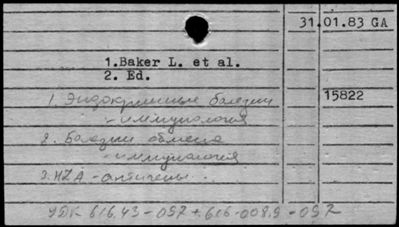 31.01.83 GA
1.Baker L. et al.
2. Ed.
1. Эндокринные болезни
15822
- иммунология
2. Болезни обмена
- иммунология
3. HLA - антигены.
УДК 616.43-097+616-008.9-097